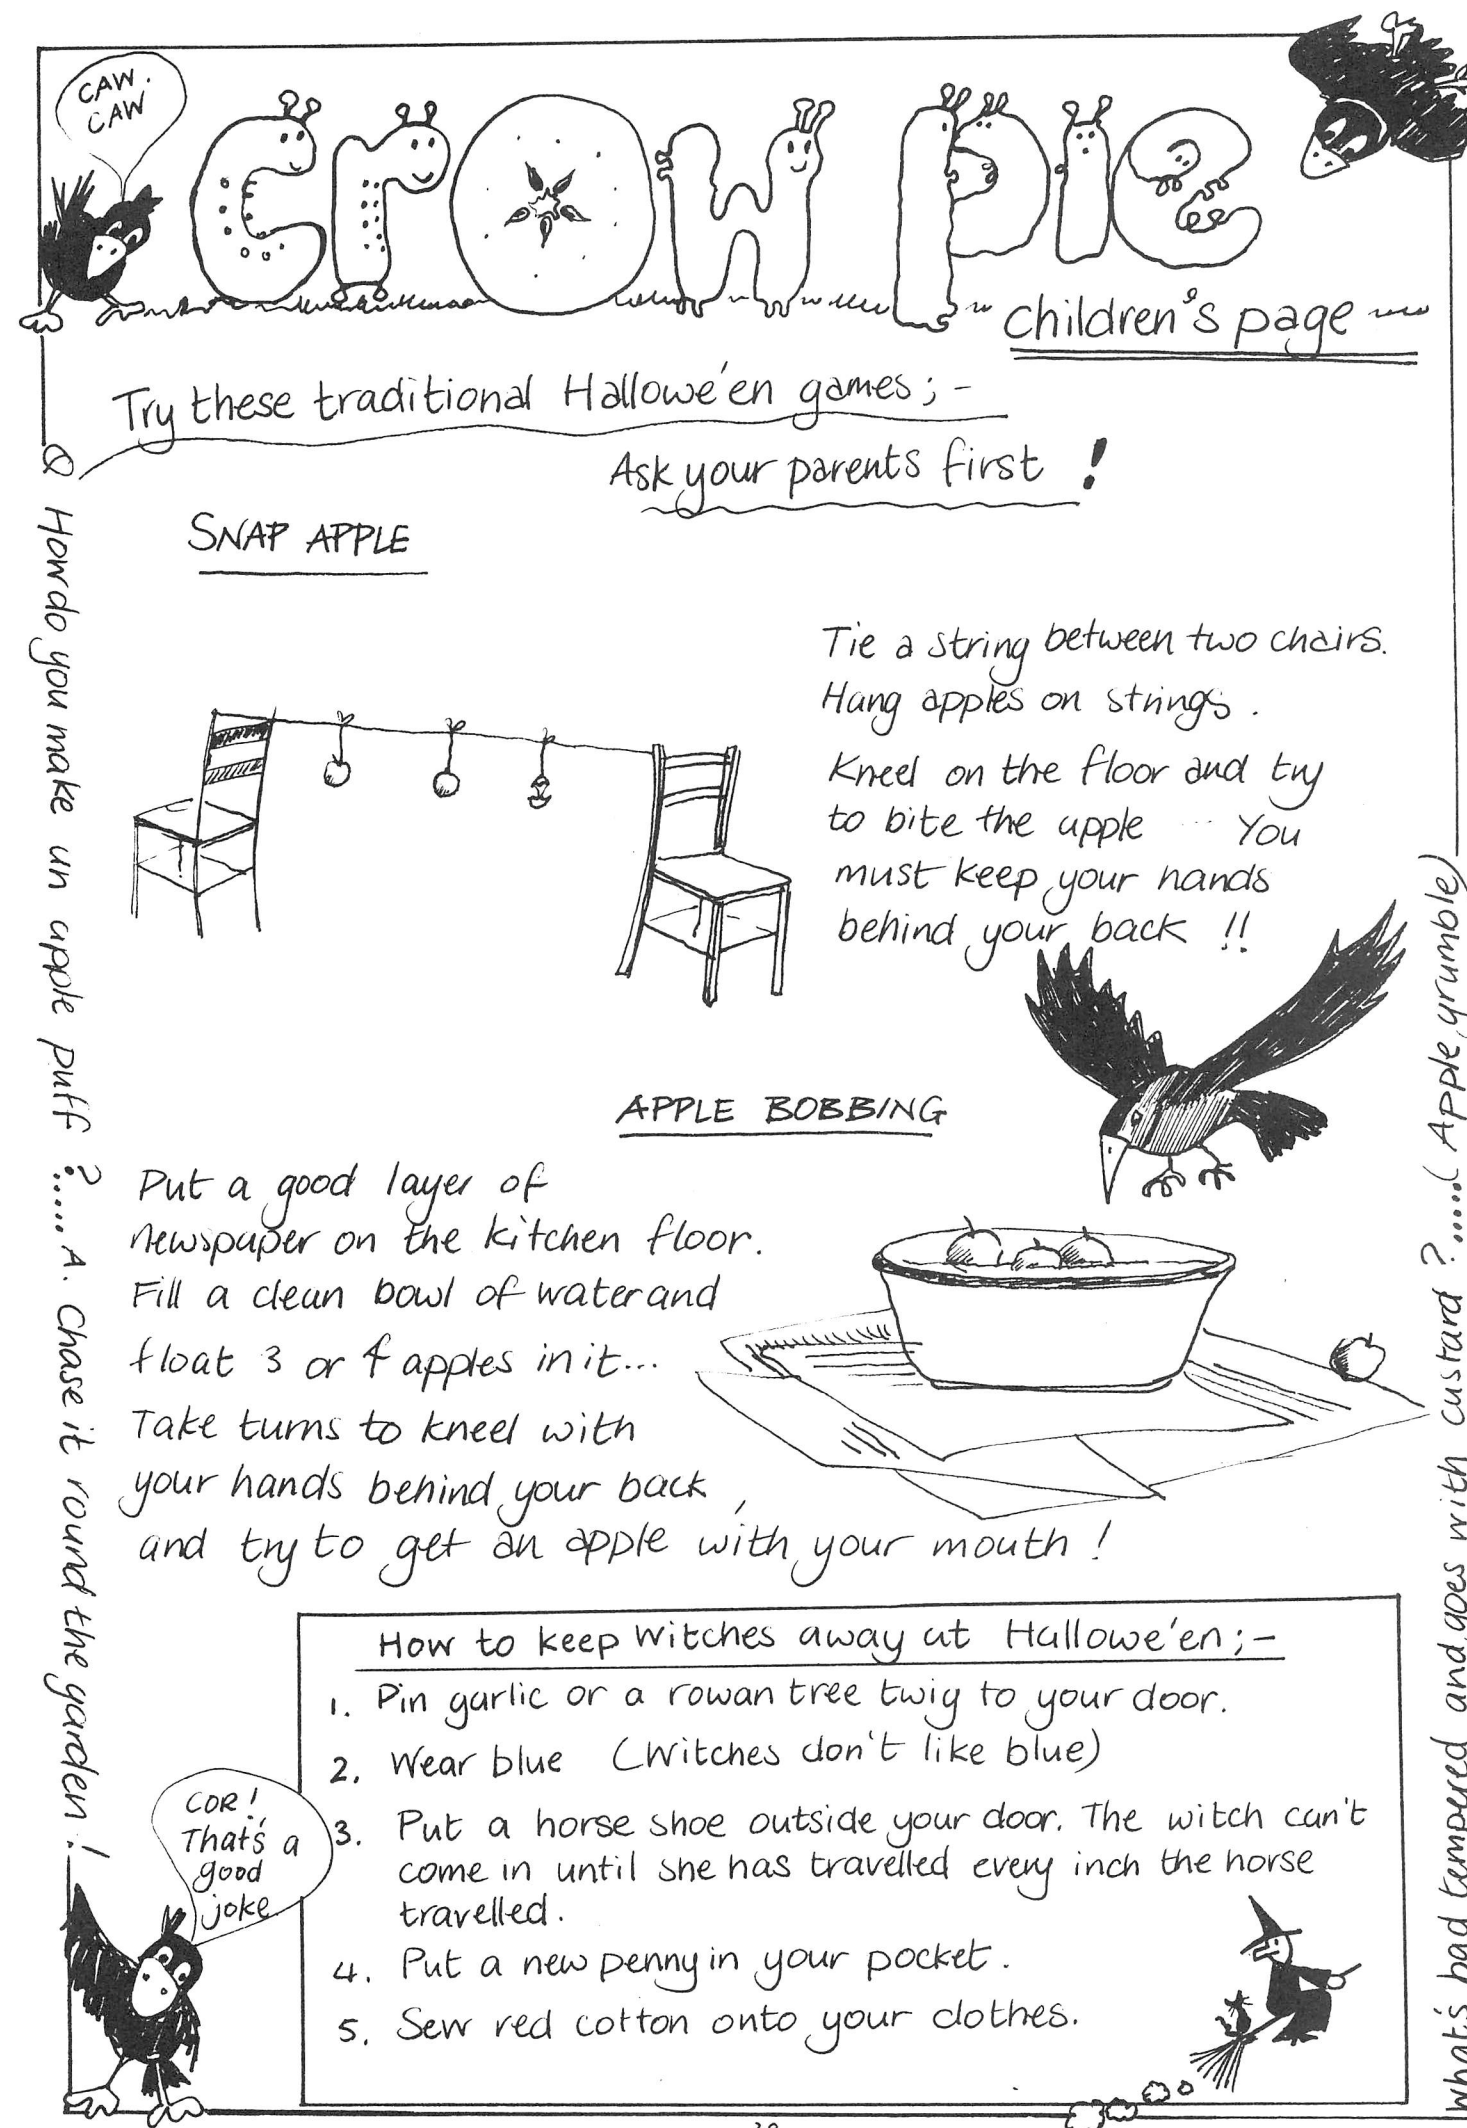 CAW.
CAW
Crow Pie
children's page
Try these traditional Hallowe'en games;-
Ask your parents first !
SNAP APPLE
Tie a string between two chairs.
Hang apples on strings.
Kneel on the floor and try
to bite the apple ... You
must keep your hands
behind your back !!
APPLE BOBBING
Put a good layer of
newspaper on the kitchen floor.
Fill a clean bowl of water and
float 3 or 4 apples in it...
Take turns to kneel with
your hands behind your back,
and try to get an apple with your mouth!
How to keep Witches away at Hallowe'en;-
1. Pin garlic or a rowan tree twig to your door.
2. Wear blue (Witches don't like blue)
3. Put a horse shoe outside your door. The witch can't
come in until she has travelled every inch the horse
travelled.
4. Put a new penny in your pocket.
5. Sew red cotton onto your clothes.
COR!
That's a
good
joke
Q How do you make an apple puff ?..... A. Chase it round the garden!
What's bad tempered and goes with custard ?.....(Apple grumble)